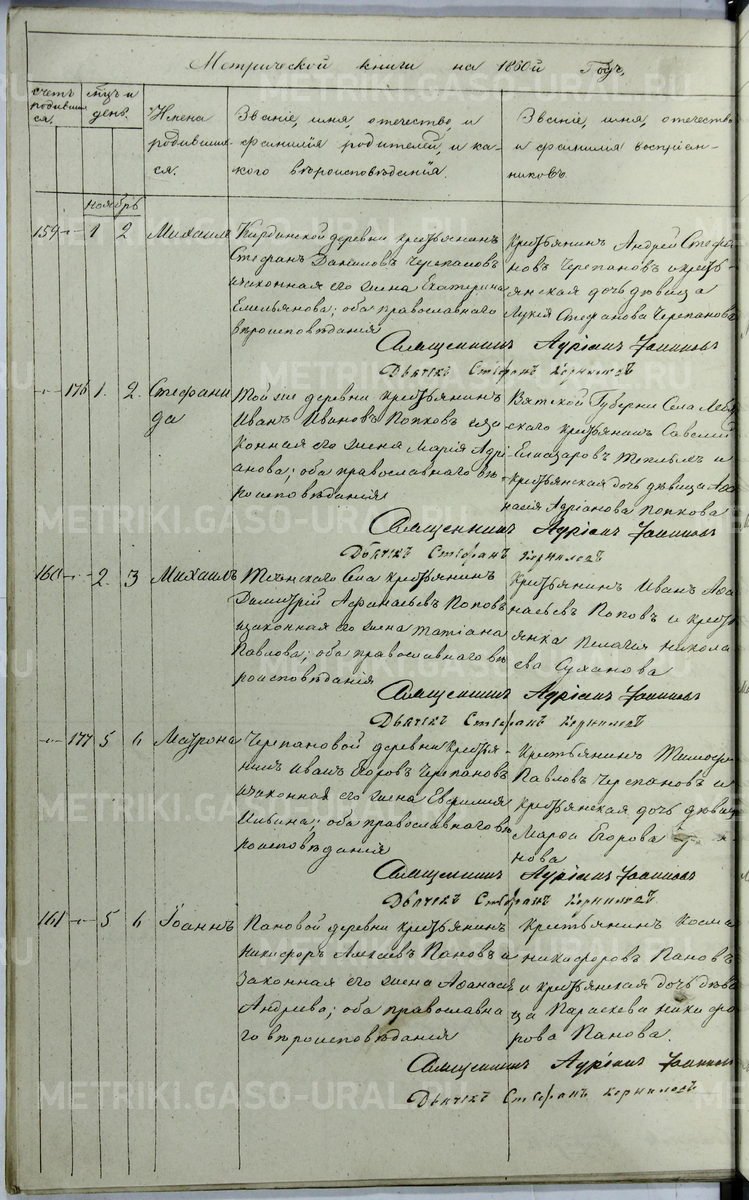 Метрической книги на 1860й Годъ,
Счетъ родивших ся.
Мцъ и день.
Имена родивших- ся.
Званіе, имя, отечество, и фамилія родителей, и ка- кого вѣроисповѣданія.
Званіе, имя, отечество и фамилія воспріем- никовъ.
ноябрь
159 1 2 Михаилъ
деревни крестьянинъ
Стефанъ Даниловъ Черепановъ
и законная его жена Екатерина
Емельянова; оба православнаго
вѣроисповѣданія
Крестьянинъ Андрей Стефа-
новъ Черепановъ и кресть-
янская дочь дѣвица
Лукія Стефанова Черепанова
Священникъ Адріанъ
Дьячекъ Стефанъ Корниловъ
176 1. 2. Стефани
да
Той же деревни крестьянинъ
Иванъ Ивановъ Попковъ и за
конная его жена Марія Адрі
анова; оба православнаго вѣ-
роисповѣданія
Вятской Губерніи Села
скаго крестьянинъ Савелій
Елиазаровъ Теплыхъ и
крестьянская дочь дѣвица Аѳа
насія Адріанова Попкова
Священникъ Адріанъ
Дьячекъ Стефанъ Корниловъ
160 2. 3 Михаилъ
Села крестьянинъ
Димитрій Афанасьевъ Поповъ
и законная его жена Татіана
Павлова; оба православнаго вѣ
роисповѣданія
Крестьянинъ Иванъ Аѳа
насьевъ Поповъ и кресть
янка Пелагія Никола
ева Суханова
Священникъ Адріанъ
Дьячекъ Стефанъ Корниловъ
177 5 6 Матрона
Черепановой деревни Кресть-
нинъ Иванъ Егоровъ Черепановъ
и законная его жена Евфимия
Ильина; оба православнаго вѣ
роисповѣданія
Крестьянинъ Тимофе
Павловъ Черепановъ и
крестьянская дочь дѣвица
Марѳа Егорова
нова
Священникъ Адріанъ
Дьячекъ Стефанъ Корниловъ
161 5 6 Іоаннъ
Пановой деревни крестьянинъ
Никифоръ Алексеевъ Пановъ и
законная его жена Аѳанасія
Андреева; оба православна
го вѣроисповѣданія
Крестьянинъ Косма
Никифоровъ Пановъ
и крестьянская дочь дѣви
ца Параскева Никифо
рова Панова.
Священникъ Адріанъ
Дьячекъ Стефанъ Корниловъ
METRIKI.GASO-URAL.RU